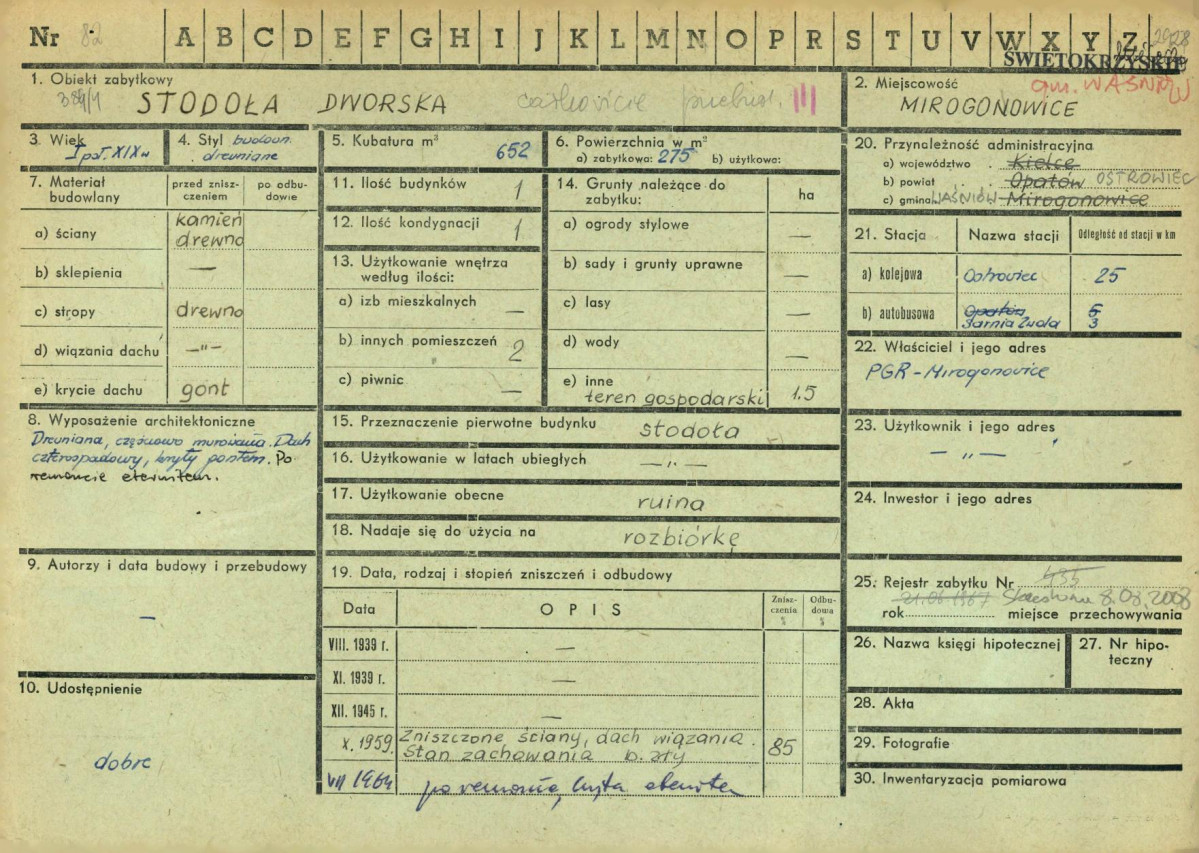 Nr 82 A B C D E F G H I J K L M N O P R S T U V W X Y Z
ŚWIĘTOKRZYSKIE
1. Obiekt zabytkowy
STODOŁA DWORSKA całkowicie III
2. Miejscowość gm. WAŚNIÓW
MIROGONOWICE
3. Wiek
I poł. XIX w
4. Styl budown.
drewniane
5. Kubatura m³
652
6. Powierzchnia w m²
a) zabytkowa: 275 b) użytkowa:
7. Materiał budowlany
przed zniszczeniem
po odbudowie
a) ściany kamień
drewno
b) sklepienia —
c) stropy drewno
d) wiązania dachu —"—
e) krycie dachu gont
8. Wyposażenie architektoniczne
Drewniana, częściowo murowana. Dach
czterospadowy, kryty gontem. Po
remoncie eternitem.
9. Autorzy i data budowy i przebudowy
—
10. Udostępnienie
dobre
11. Ilość budynków 1
12. Ilość kondygnacji 1
13. Użytkowanie wnętrza
według ilości:
a) izb mieszkalnych —
b) innych pomieszczeń 2
c) piwnic —
14. Grunty należące do
zabytku:
ha
a) ogrody stylowe —
b) sady i grunty uprawne —
c) lasy —
d) wody —
e) inne
teren gospodarski 1.5
15. Przeznaczenie pierwotne budynku stodoła
16. Użytkowanie w latach ubiegłych —"—
17. Użytkowanie obecne ruina
18. Nadaje się do użycia na rozbiórkę
19. Data, rodzaj i stopień zniszczeń i odbudowy
Data OPIS Zniszczenia % Odbudowa %
VIII. 1939 r. —
XI. 1939 r. —
XII. 1945 r. —
X. 1959 Zniszczone ściany, dach wiązania.
Stan zachowania b. zły 85
VII 1964 po remoncie, kryta eternitem
20. Przynależność administracyjna
a) województwo Kielce
b) powiat Opatów OSTROWIEC
c) gmina WAŚNIÓW Mirogonowice
21. Stacja Nazwa stacji Odległość od stacji w km
a) kolejowa Ostrowiec 25
b) autobusowa Opatów 5
Sarnia Zwola 3
22. Właściciel i jego adres
PGR - Mirogonowice
23. Użytkownik i jego adres
—"—
24. Inwestor i jego adres
25. Rejestr zabytku Nr 435
21.06.1967 8.08.2008
rok miejsce przechowywania
26. Nazwa księgi hipotecznej
27. Nr hipoteczny
28. Akta
29. Fotografie
30. Inwentaryzacja pomiarowa